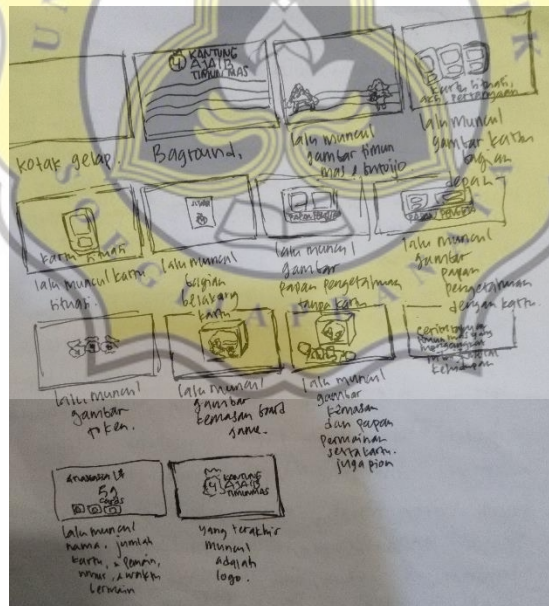 4 KANTUNG
AJAIB
TIMUNMAS
kartu situasi,
aksi, pertanyaan
kotak gelap.
Baground.
lalu muncul
gambar timun
mas & butoijo
lalu muncul
gambar kartu
bagian
depan
kartu situasi
lalu muncul kartu
situasi.
lalu muncul
bagian
belakang
kartu
lalu muncul
gambar
papan pengetahuan
tanpa kartu
lalu muncul
gambar
papan
pengetahuan
dengan kartu.
lalu muncul
gambar
token.
lalu muncul
gambar
kemasan board
game.
lalu muncul
gambar
kemasan
dan papan
permainan
serta kartu.
juga pion
52
cards
lalu muncul
nama, jumlah
kartu, pemain,
umur, waktu
bermain
4 KANTUNG
AJAIB
TIMUNMAS
yang terakhir
muncul
adalah
logo.